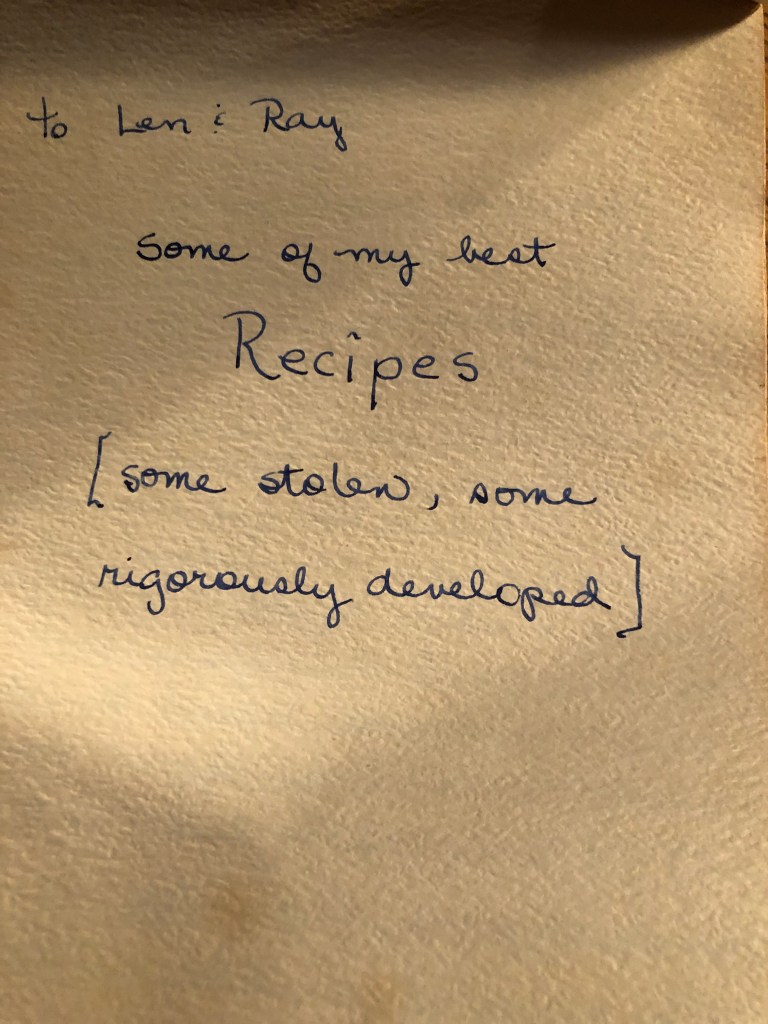 to Len & Ray
some of my best
Recipes
[some stolen, some
rigorously developed]